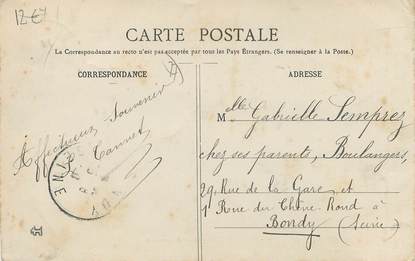 12€
CARTE POSTALE
La Correspondance au recto n'est pas acceptée par tous les Pays Étrangers. (Se renseigner à la Poste.)
CORRESPONDANCE
ADRESSE
Affectueux Souvenir
Mlle Gabrielle Semprez
chez ses parents, Boulangers,
29, Rue de la Gare et
1 Rue du Chêne Rond à
Bondy (Seine)